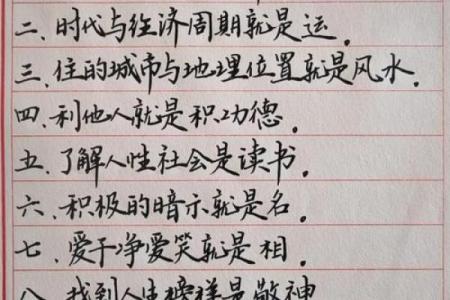 二、时代与经济周期就是运。
三、住的城市与地理位置就是风水。
四、利他人就是积功德。
五、了解人性社会是读书。
六、积极的暗示就是名。
七、爱干净爱笑就是相。
八、找到人生榜样是敬神